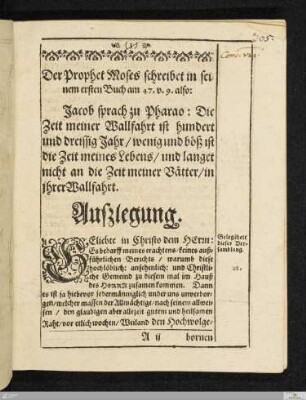 305.
(3)
Der Prophet Moses schreibet in sei
nem ersten Buch am 47. v. 9. also:
Jacob sprach zu Pharao: Die
Zeit meiner Wallfahrt ist hundert
und dreissig Jahr / wenig und böß ist
die Zeit meines Lebens / und langet
nicht an die Zeit meiner Vätter / in
ihrer Wallfahrt.
Außlegung.
GEliebte in Christo dem HErrn:
Es bedarff meines erachtens keines auß-
führlichen Berichts / warumb diese
hochlöblich: ansehenlich: und Christli-
che Gemeind zu diesem mal im Hauß
des HERRN zusamen kommen. Dann
es ist ja hiebevor jedermänniglich under uns unverbor-
gen / welcher massen der Allmächtige / nach seinem allwei-
sen / den glaubigen aber allezeit gutem und heilsamen
Raht / vor etlich wochen / Weiland den Hochwolge-
Gelegenheit
dieser Ver-
samlung.
A ij
bornen